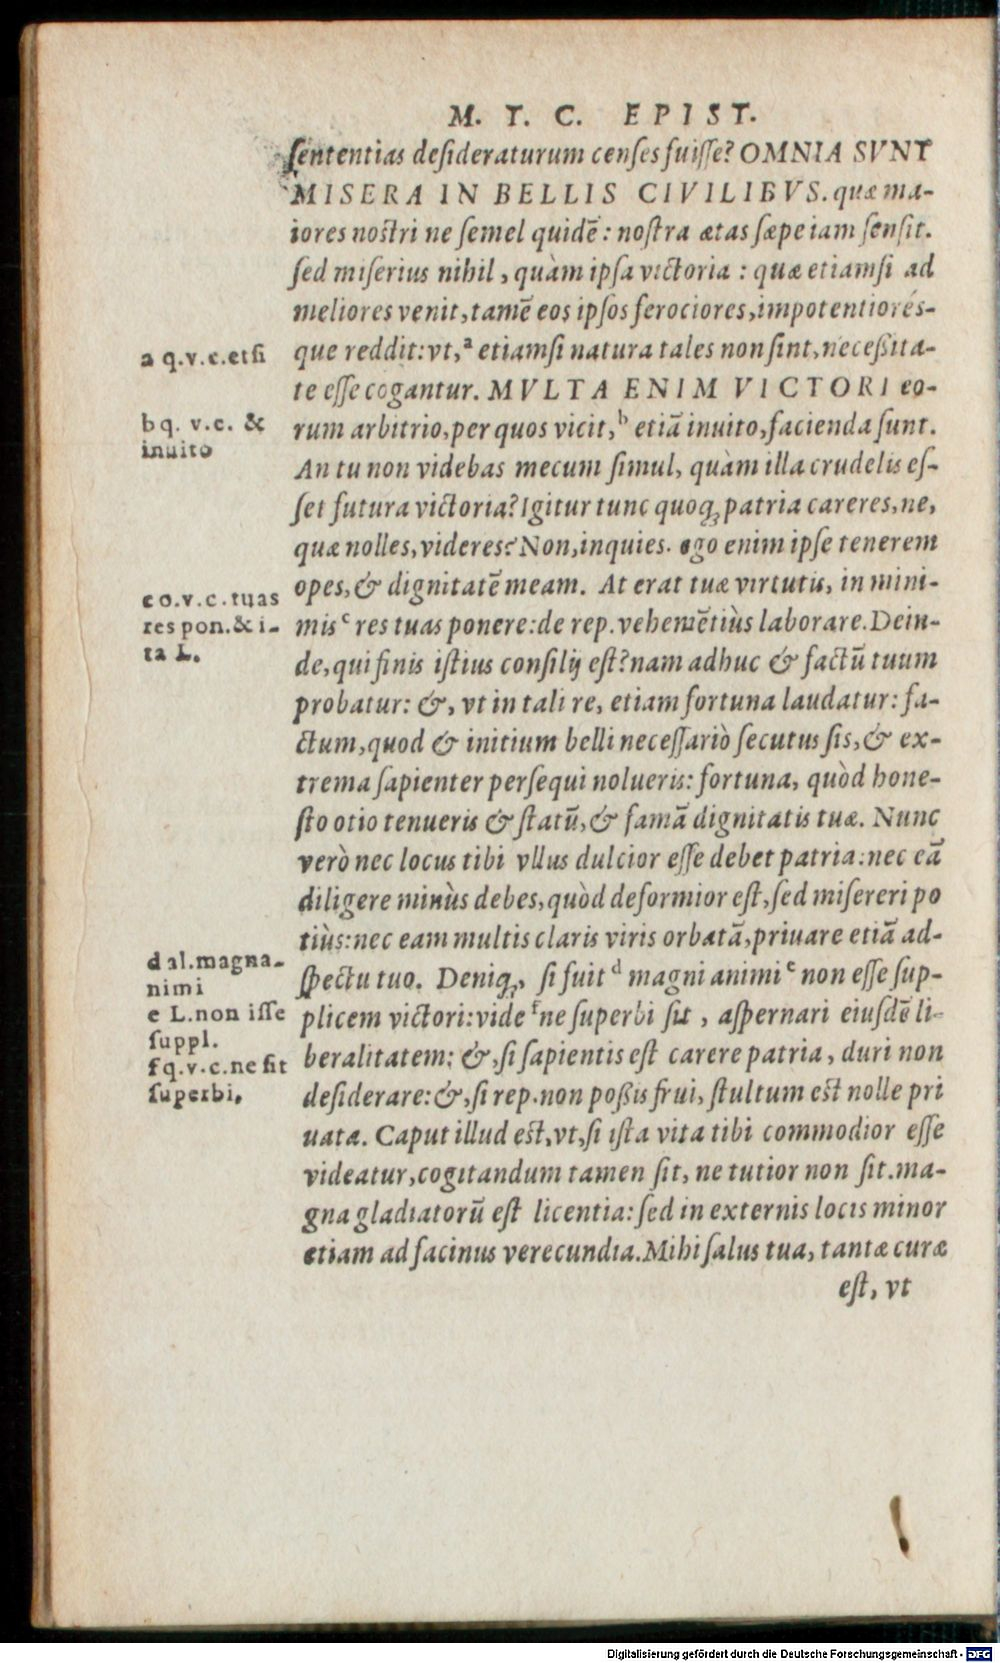 M. T. C. EPIST.
ſententias deſideraturum cenſes fuiſſe? OMNIA SVNT
MISERA IN BELLIS CIVILIBVS. quæ ma-
iores nostri ne ſemel quidē: noſtra ætas ſæpe iam ſenſit.
ſed miſerius nihil, quàm ipſa victoria: quæ etiamſi ad
meliores venit, tamē eos ipſos ferociores, impotentiorés-
que reddit: vt, ᵃ etiamſi natura tales non ſint, neceßita-
te eſſe cogantur. MVLTA ENIM VICTORI eo-
rum arbitrio, per quos vicit, ᵇ etiā inuito, facienda ſunt.
An tu non videbas mecum ſimul, quàm illa crudelis eſ-
ſet futura victoria? Igitur tunc quoq; patria careres, ne,
quæ nolles, videres? Non, inquies. ego enim ipſe tenerem
opes, & dignitatē meam. At erat tuæ virtutis, in mini-
mis ᶜ res tuas ponere: de rep. vehemētiùs laborare. Dein-
de, qui finis iſtius conſilij eſt? nam adhuc & factū tuum
probatur: &, vt in tali re, etiam fortuna laudatur: fa-
ctum, quod & initium belli neceſſariò ſecutus ſis, & ex-
trema ſapienter perſequi nolueris: fortuna, quòd hone-
ſto otio tenueris & ſtatū, & famā dignitatis tuæ. Nunc
verò nec locus tibi vllus dulcior eſſe debet patria: nec eā
diligere minùs debes, quòd deformior eſt, ſed miſereri po
tiùs: nec eam multis claris viris orbatā, priuare etiā ad-
ſpectu tuo. Deniq;, ſi fuit ᵈ magni animi ᵉ non eſſe ſup-
plicem victori: vide ᶠ ne ſuperbi ſit, aſpernari eiuſdē li-
beralitatem: &, ſi ſapientis eſt carere patria, duri non
deſiderare: &, ſi rep. non poßis frui, ſtultum est nolle pri
uata. Caput illud est, vt, ſi iſta vita tibi commodior eſſe
videatur, cogitandum tamen ſit, ne tutior non ſit. ma-
gna gladiatorū eſt licentia: ſed in externis locis minor
etiam ad facinus verecundia. Mihi ſalus tua, tantæ curæ
eſt, vt
a q.v.c.etſi
b q. v.c. &
inuito
c o.v.c.tuas
res pon.& i-
ta L.
d al.magna-
nimi
e L.non iſſe
ſuppl.
f q.v.c.ne ſit
ſuperbi.
Digitalisierung gefördert durch die Deutsche Forschungsgemeinschaft - DFG